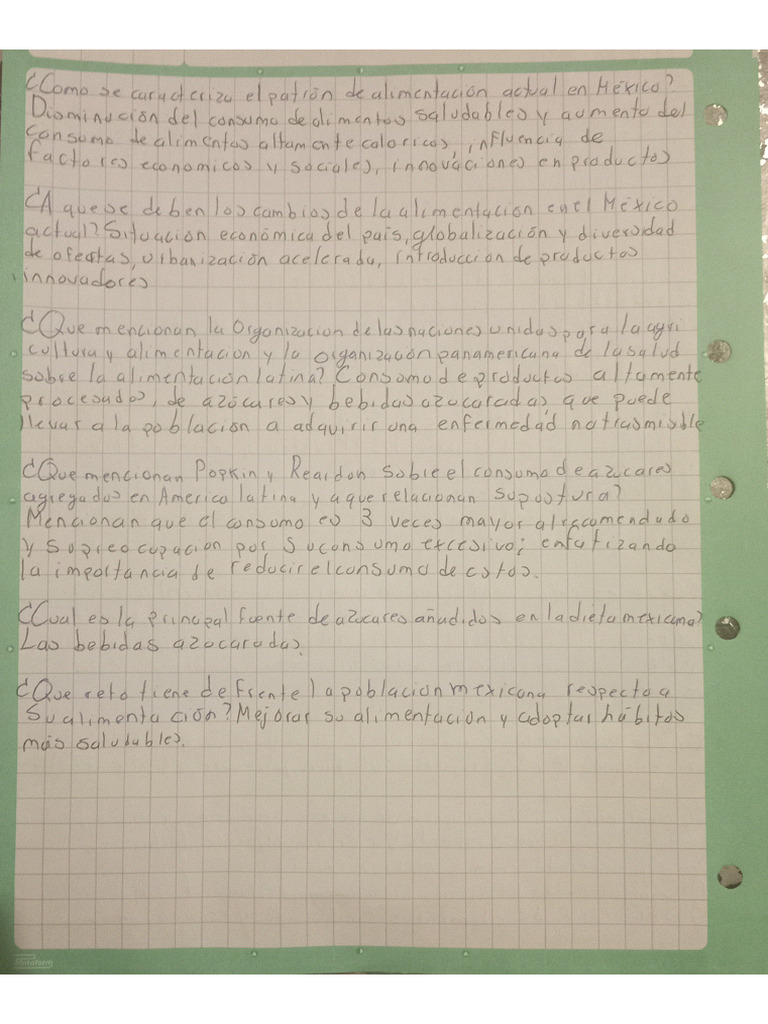 ¿Como se caracteriza el patrón de alimentación actual en México?
Disminución del consumo de alimentos saludables y aumento del
consumo de alimentos altamente caloricos, influencia de
factores economicos y sociales, innovaciones en productos
¿A que se deben los cambios de la alimentación en el México
actual? Situación económica del pais, globalización y diversidad
de ofertas, urbanización acelerada, introducción de productos
innovadores
¿Que mencionan la Organizacion de las naciones unidas para la agri
cultura y alimentacion y la organización panamericana de la salud
sobre la alimentación latina? Consumo de productos altamente
procesados, de azúcares y bebidas azucaradas que puede
llevar a la población a adquirir una enfermedad no trasmisble
¿Que mencionan Popkin y Reardon sobre el consumo de azucares
agregados en America latina y a que relacionan su postura?
Mencionan que el consumo es 3 veces mayor al recomendado
y su preocupación por su consumo excesivo; enfatizando
la importancia de reducir el consumo de estos.
¿Cual es la principal fuente de azucares añadidos en la dieta mexicana?
Las bebidas azucaradas.
¿Que reto tiene de frente la población mexicana respecto a
su alimentación? Mejorar su alimentación y adoptar hábitos
más saludables.